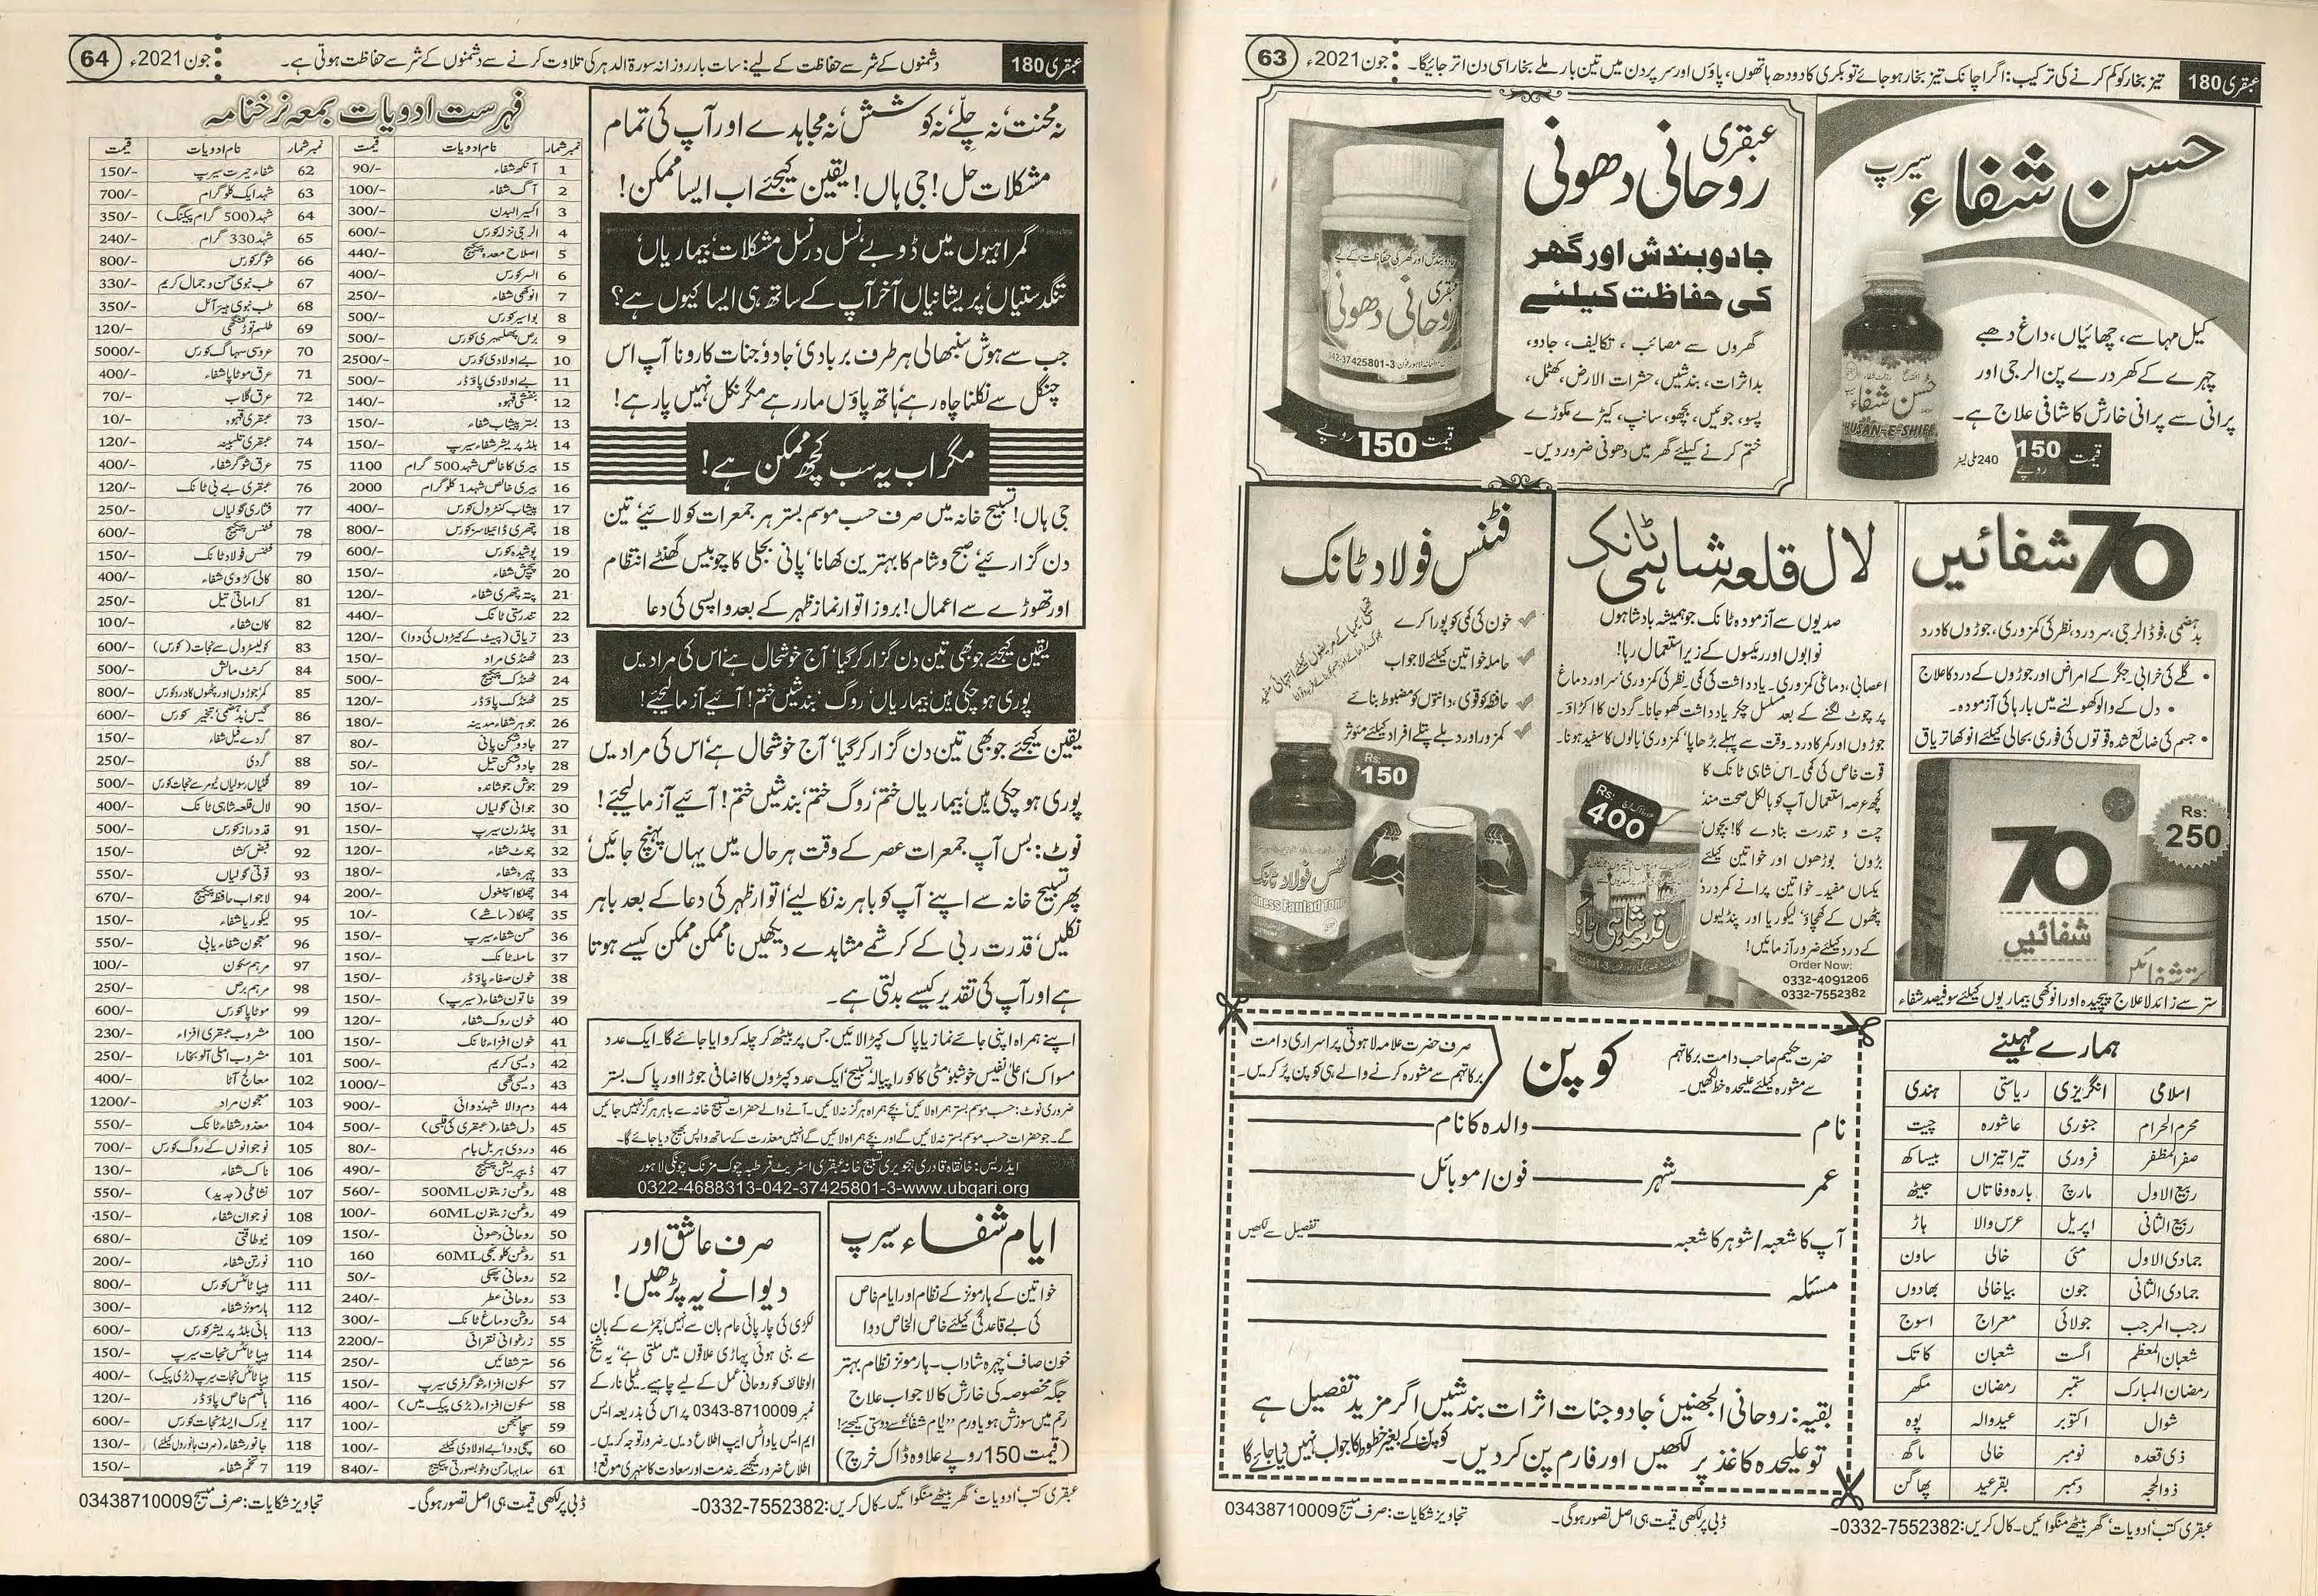 عبقری 180
تیز بخار کو کم کرنے کی ترکیب: اگر اچانک تیز بخار ہوجائے تو بکری کا دودھ ہاتھوں، پاؤں اور سر پر دن میں تین بار ملے بخار اسی دن اتر جائیگا۔
جون 2021ء
63
حسن شفاء سیرپ
کیل مہاسے، چھائیاں، داغ دھبے
چہرے کے کھردرے پن الرجی اور
پرانی سے پرانی خارش کا شافی علاج ہے۔
قیمت 150 روپے
240 ملی لیٹر
عبقری
روحانی دھونی
جادو بندش اور گھر
کی حفاظت کیلئے
گھروں سے مصائب، تکالیف، جادو،
بداثرات، بندشیں، حشرات الارض، کھٹمل،
پسو، جوئیں، بچھو، سانپ، کیڑے مکوڑے
ختم کرنے کیلئے گھر میں دھونی ضرور دیں۔
قیمت 150 روپے
70 شفائیں
بدہضمی، فوڈ الرجی، سر درد، نظر کی کمزوری، جوڑوں کا درد
• گلے کی خرابی جگر کے امراض اور جوڑوں کے درد کا علاج
• دل کے والو کھولنے میں بارہا کی آزمودہ۔
• جسم کی ضائع شدہ قوتوں کی فوری بحالی کیلئے انوکھا تریاق
Rs: 250
70
شفائیں
ستر سے زائد لاعلاج پیچیدہ اور انوکھی بیماریوں کیلئے سو فیصد شفاء
لال قلعہ شاہی ٹانک
صدیوں سے آزمودہ ٹانک جو ہمیشہ بادشاہوں
نوابوں اور رئیسوں کے زیر استعمال رہا!
اعصابی، دماغی کمزوری۔ یادداشت کی کمی۔ نظر کی کمزوری، سر اور دماغ
پر چوٹ لگنے کے بعد مسلسل چکر یادداشت کھو جانا۔ گردن کا اکڑاؤ۔
جوڑوں اور کمر کا درد۔ وقت سے پہلے بڑھاپا، کمزوری، بالوں کا سفید ہونا۔
قوت خاص کی کمی۔ اس شاہی ٹانک کا
کچھ عرصہ استعمال آپ کو بالکل صحت مند،
چست و تندرست بنا دے گا! بچوں،
بڑوں، بوڑھوں اور خواتین کیلئے
یکساں مفید۔ خواتین پرانے کمر درد،
پٹھوں کے کھچاؤ، لیکوریا اور پنڈلیوں
کے درد کیلئے ضرور آزمائیں!
Order Now:
0332-4091206
0332-7552382
Rs: 400
فٹنس فولاد ٹانک
خون کی کمی کو پورا کرے
حاملہ خواتین کیلئے لاجواب
حافظہ کو قوی، دانتوں کو مضبوط بنائے
کمزور اور دبلے پتلے افراد کیلئے مؤثر
Rs. 150
ہمارے مہینے
اسلامی انگریزی ریاستی ہندی
محرم الحرام جنوری عاشورہ چیت
صفر المظفر فروری تیراتیزاں بیساکھ
ربیع الاول مارچ بارہ وفاتاں جیٹھ
ربیع الثانی اپریل عرس والا ہاڑ
جمادی الاول مئی خالی ساون
جمادی الثانی جون بیاخالی بھادوں
رجب المرجب جولائی معراج اسوج
شعبان المعظم اگست شعبان کاتک
رمضان المبارک ستمبر رمضان مگھر
شوال اکتوبر عیدوالہ پوہ
ذی قعدہ نومبر خالی ماگھ
ذوالحجہ دسمبر بقرعید پھاگن
حضرت حکیم صاحب دامت برکاتہم
سے مشورہ کیلئے علیحدہ خط لکھیں۔
کوپن
صرف حضرت علامہ لاہوتی پراسراری دامت
برکاتہم سے مشورہ کرنے والے ہی کوپن پُر کریں۔
نام والدہ کا نام
عمر شہر فون/موبائل
آپ کا شعبہ/شوہر کا شعبہ تفصیل سے لکھیں
مسئلہ
بقیہ: روحانی الجھنیں، جادو جنات اثرات بندشیں اگر مزید تفصیل ہے
تو علیحدہ کاغذ پر لکھیں اور فارم پن کر دیں۔ کوپن کے بغیر خطوط کا جواب نہیں دیا جائے گا
عبقری کتب، ادویات، گھر بیٹھے منگوائیں۔ کال کریں: 0332-7552382۔
ڈبی پر لکھی قیمت ہی اصل تصور ہوگی۔
تجاویز شکایات: صرف میسج 03438710009
عبقری 180
دشمنوں کے شر سے حفاظت کے لیے: سات بار روزانہ سورۃ الدہر کی تلاوت کرنے سے دشمنوں کے شر سے حفاظت ہوتی ہے۔
جون 2021ء
64
نہ محنت، نہ چلّے، نہ کوشش، نہ مجاہدے اور آپ کی تمام
مشکلات حل! جی ہاں! یقین کیجئے اب ایسا ممکن!
گمراہیوں میں ڈوبے، نسل در نسل مشکلات، بیماریاں،
تنگدستیاں، پریشانیاں آخر آپ کے ساتھ ہی ایسا کیوں ہے؟
جب سے ہوش سنبھالی ہر طرف بربادی، جادو، جنات کا رونا آپ اس
چنگل سے نکلنا چاہ رہے، ہاتھ پاؤں مار رہے مگر نکل نہیں پارہے!
مگر اب یہ سب کچھ ممکن ہے!
جی ہاں! تسبیح خانہ میں صرف حسب موسم بستر ہر جمعرات کو لائیے، تین
دن گزاریئے، صبح و شام کا بہترین کھانا، پانی بجلی کا چوبیس گھنٹے انتظام
اور تھوڑے سے اعمال! بروز اتوار نماز ظہر کے بعد واپسی کی دعا
یقین کیجئے جو بھی تین دن گزار کر گیا، آج خوشحال ہے، اس کی مرادیں
پوری ہوچکی ہیں، بیماریاں، روگ، بندشیں ختم! آئیے آزمالیجئے!
یقین کیجئے جو بھی تین دن گزار کر گیا، آج خوشحال ہے، اس کی مرادیں
پوری ہوچکی ہیں، بیماریاں ختم، روگ ختم، بندشیں ختم! آئیے آزمالیجئے!
نوٹ: بس آپ جمعرات عصر کے وقت ہر حال میں یہاں پہنچ جائیں،
پھر تسبیح خانہ سے اپنے آپ کو باہر نہ نکالیے، اتوار ظہر کی دعا کے بعد باہر
نکلیں، قدرت ربی کے کرشمے مشاہدے دیکھیں ناممکن ممکن کیسے ہوتا
ہے اور آپ کی تقدیر کیسے بدلتی ہے۔
اپنے ہمراہ اپنی جائے نماز یا پاک کپڑا لائیں جس پر بیٹھ کر چلہ کروایا جائے گا۔ ایک عدد
مسواک، اعلیٰ نفیس خوشبو، مٹی کا کورا پیالہ، تسبیح، ایک عدد کپڑوں کا اضافی جوڑا اور پاک بستر
ضروری نوٹ: حسب موسم بستر ہمراہ لائیں، بچے ہمراہ ہرگز نہ لائیں۔ آنے والے حضرات تسبیح خانہ سے باہر ہرگز نہیں جائیں
گے۔ جو حضرات حسب موسم بستر نہ لائیں گے اور بچے ہمراہ لائیں گے انہیں معذرت کے ساتھ واپس بھیج دیا جائے گا۔
ایڈریس: خانقاہ قادری ہجویری تسبیح خانہ عبقری اسٹریٹ قرطبہ چوک مزنگ چونگی لاہور
0322-4688313-042-37425801-3-www.ubqari.org
ایام شفاء سیرپ
خواتین کے ہارمونز کے نظام اور ایام خاص
کی بے قاعدگی کیلئے خاص الخاص دوا
خون صاف، چہرہ شاداب۔ ہارمونز نظام بہتر
جگہ مخصوصہ کی خارش کا لاجواب علاج
رحم میں سوزش ہو یا ورم "ایام شفاء" سے دوستی کیجئے!
(قیمت 150 روپے علاوہ ڈاک خرچ)
صرف عاشق اور
دیوانے یہ پڑھیں!
لکڑی کی چارپائی عام بان سے نہیں، چمڑے کے بان
سے بنی ہوئی پہاڑی علاقوں میں ملتی ہے، یہ شیخ
الوظائف کو روحانی عمل کے لیے چاہیے۔ ٹیلی نار کے
نمبر 0343-8710009 پر اس کی بذریعہ ایس
ایم ایس یا واٹس ایپ اطلاع دیں۔ ضرور توجہ کریں۔
اطلاع ضرور کیجئے۔ خدمت اور سعادت کا سنہری موقع!
فہرست ادویات بمعہ نرخنامہ
نمبر شمار نام ادویات قیمت
1 آنکھ شفاء 90/-
2 آگ شفاء 100/-
3 اکسیر البدن 300/-
4 الرجی نزلہ کورس 600/-
5 اصلاح معدہ پیکیج 440/-
6 السر کورس 400/-
7 انوکھی شفاء 250/-
8 بواسیر کورس 500/-
9 برص پھلبہری کورس 500/-
10 بے اولادی کورس 2500/-
11 بے اولادی پاؤڈر 500/-
12 بنفشی قہوہ 140/-
13 بستر پیشاب شفاء 150/-
14 بلڈ پریشر شفاء سیرپ 150/-
15 بیری کا خالص شہد 500 گرام 1100
16 بیری خالص شہد 1 کلوگرام 2000
17 پیشاب کنٹرول کورس 400/-
18 پتھری ڈائیلاسز کورس 800/-
19 پوشیدہ کورس 600/-
20 پیچش شفاء 150/-
21 پتہ پتھری شفاء 120/-
22 تندرستی ٹانک 440/-
23 تریاق (پیٹ کے کیڑوں کی دوا) 120/-
23 ٹھنڈی مراد 150/-
24 ٹھنڈک پیکیج 500/-
25 ٹھنڈک پاؤڈر 120/-
26 جوہر شفاء مدینہ 180/-
27 جادو شکن پانی 80/-
28 جادو شکن تیل 50/-
29 جوش جوشاندہ 10/-
30 جوانی گولیاں 150/-
31 چلڈرن سیرپ 150/-
32 چوٹ شفاء 120/-
33 چہرہ شفاء 180/-
34 چھلکا اسپغول 200/-
35 چھلکا (ساشے) 10/-
36 حسن شفاء سیرپ 150/-
37 حاملہ ٹانک 150/-
38 خون صفاء پاؤڈر 150/-
39 خاتون شفاء (سیرپ) 150/-
40 خون روک شفاء 120/-
41 خون افزاء ٹانک 150/-
42 دیسی کریم 500/-
43 دیسی گھی 1000/-
44 دم والا شہد دوائی 900/-
45 دل شفاء (عبقری کی قلبی) 500/-
46 دردی ہربل بام 80/-
47 ڈیپریشن پیکیج 490/-
48 روغن زیتون 500ML 560/-
49 روغن زیتون 60ML 100/-
50 روحانی دھونی 150/-
51 روغن کلونجی 60ML 160
52 روحانی پھکی 50/-
53 روحانی عطر 240/-
54 روشن دماغ ٹانک 300/-
55 زرغوانی نقرائی 2200/-
56 ستر شفائیں 250/-
57 سکون افزاء شوگر فری سیرپ 150/-
58 سکون افزاء (بڑی پیک میں) 400/-
59 سچا منجن 100/-
60 سچی دوا بے اولادی کیلئے 100/-
61 سدا بہار حسن و خوبصورتی پیکیج 840/-
نمبر شمار نام ادویات قیمت
62 شفاء حیرت سیرپ 150/-
63 شہد ایک کلو گرام 700/-
64 شہد (500 گرام پیکنگ) 350/-
65 شہد 330 گرام 240/-
66 شوگر کورس 800/-
67 طب نبوی حسن و جمال کریم 330/-
68 طب نبوی ہیئر آئل 350/-
69 طلسم توڑ کنگھی 120/-
70 عروسی سہاگ کورس 5000/-
71 عرق موٹاپا شفاء 400/-
72 عرق گلاب 70/-
73 عبقری قہوہ 10/-
74 عبقری تلبینہ 120/-
75 عرق شوگر شفاء 400/-
76 عبقری بے بی ٹانک 120/-
77 فشاری گولیاں 250/-
78 فٹنس پیکیج 600/-
79 فٹنس فولاد ٹانک 150/-
80 کالی کڑوی شفاء 400/-
81 کراماتی تیل 250/-
82 کان شفاء 100/-
83 کولیسٹرول سے نجات (کورس) 600/-
84 کرنٹ مالش 500/-
85 کمر جوڑوں اور پٹھوں کا درد کورس 800/-
86 گیس بدہضمی تبخیر کورس 600/-
87 گردے فیل شفاء 150/-
88 گردی 250/-
89 گلٹیاں رسولیاں ٹیومر سے نجات کورس 500/-
90 لال قلعہ شاہی ٹانک 400/-
91 قد دراز کورس 500/-
92 قبض کشا 150/-
93 قوتی گولیاں 550/-
94 لاجواب حافظہ پیکیج 670/-
95 لیکوریا شفاء 150/-
96 معجون شفاء یابی 550/-
97 مرہم سکون 100/-
98 مرہم برص 250/-
99 موٹاپا کورس 600/-
100 مشروب عبقری افزاء 230/-
101 مشروب املی آلو بخارا 250/-
102 معالج آٹا 400/-
103 معجون مراد 1200/-
104 معذور شفاء ٹانک 550/-
105 نوجوانوں کے روگ کورس 700/-
106 ناک شفاء 130/-
107 نشاطی (جدید) 550/-
108 نوجوان شفاء 150/-
109 نیو طاقتی 680/-
110 نورتن شفاء 200/-
111 ہیپاٹائٹس کورس 800/-
112 ہارمونز شفاء 300/-
113 ہائی بلڈ پریشر کورس 600/-
114 ہیپاٹائٹس نجات سیرپ 150/-
115 ہیپاٹائٹس نجات سیرپ (بڑی پیک) 400/-
116 ہاضم خاص پاؤڈر 120/-
117 یورک ایسڈ نجات کورس 600/-
118 جانور شفاء (صرف جانوروں کیلئے) 130/-
119 7 تخم شفاء 150/-
عبقری کتب، ادویات، گھر بیٹھے منگوائیں۔ کال کریں: 0332-7552382۔
ڈبی پر لکھی قیمت ہی اصل تصور ہوگی۔
تجاویز شکایات: صرف میسج 03438710009